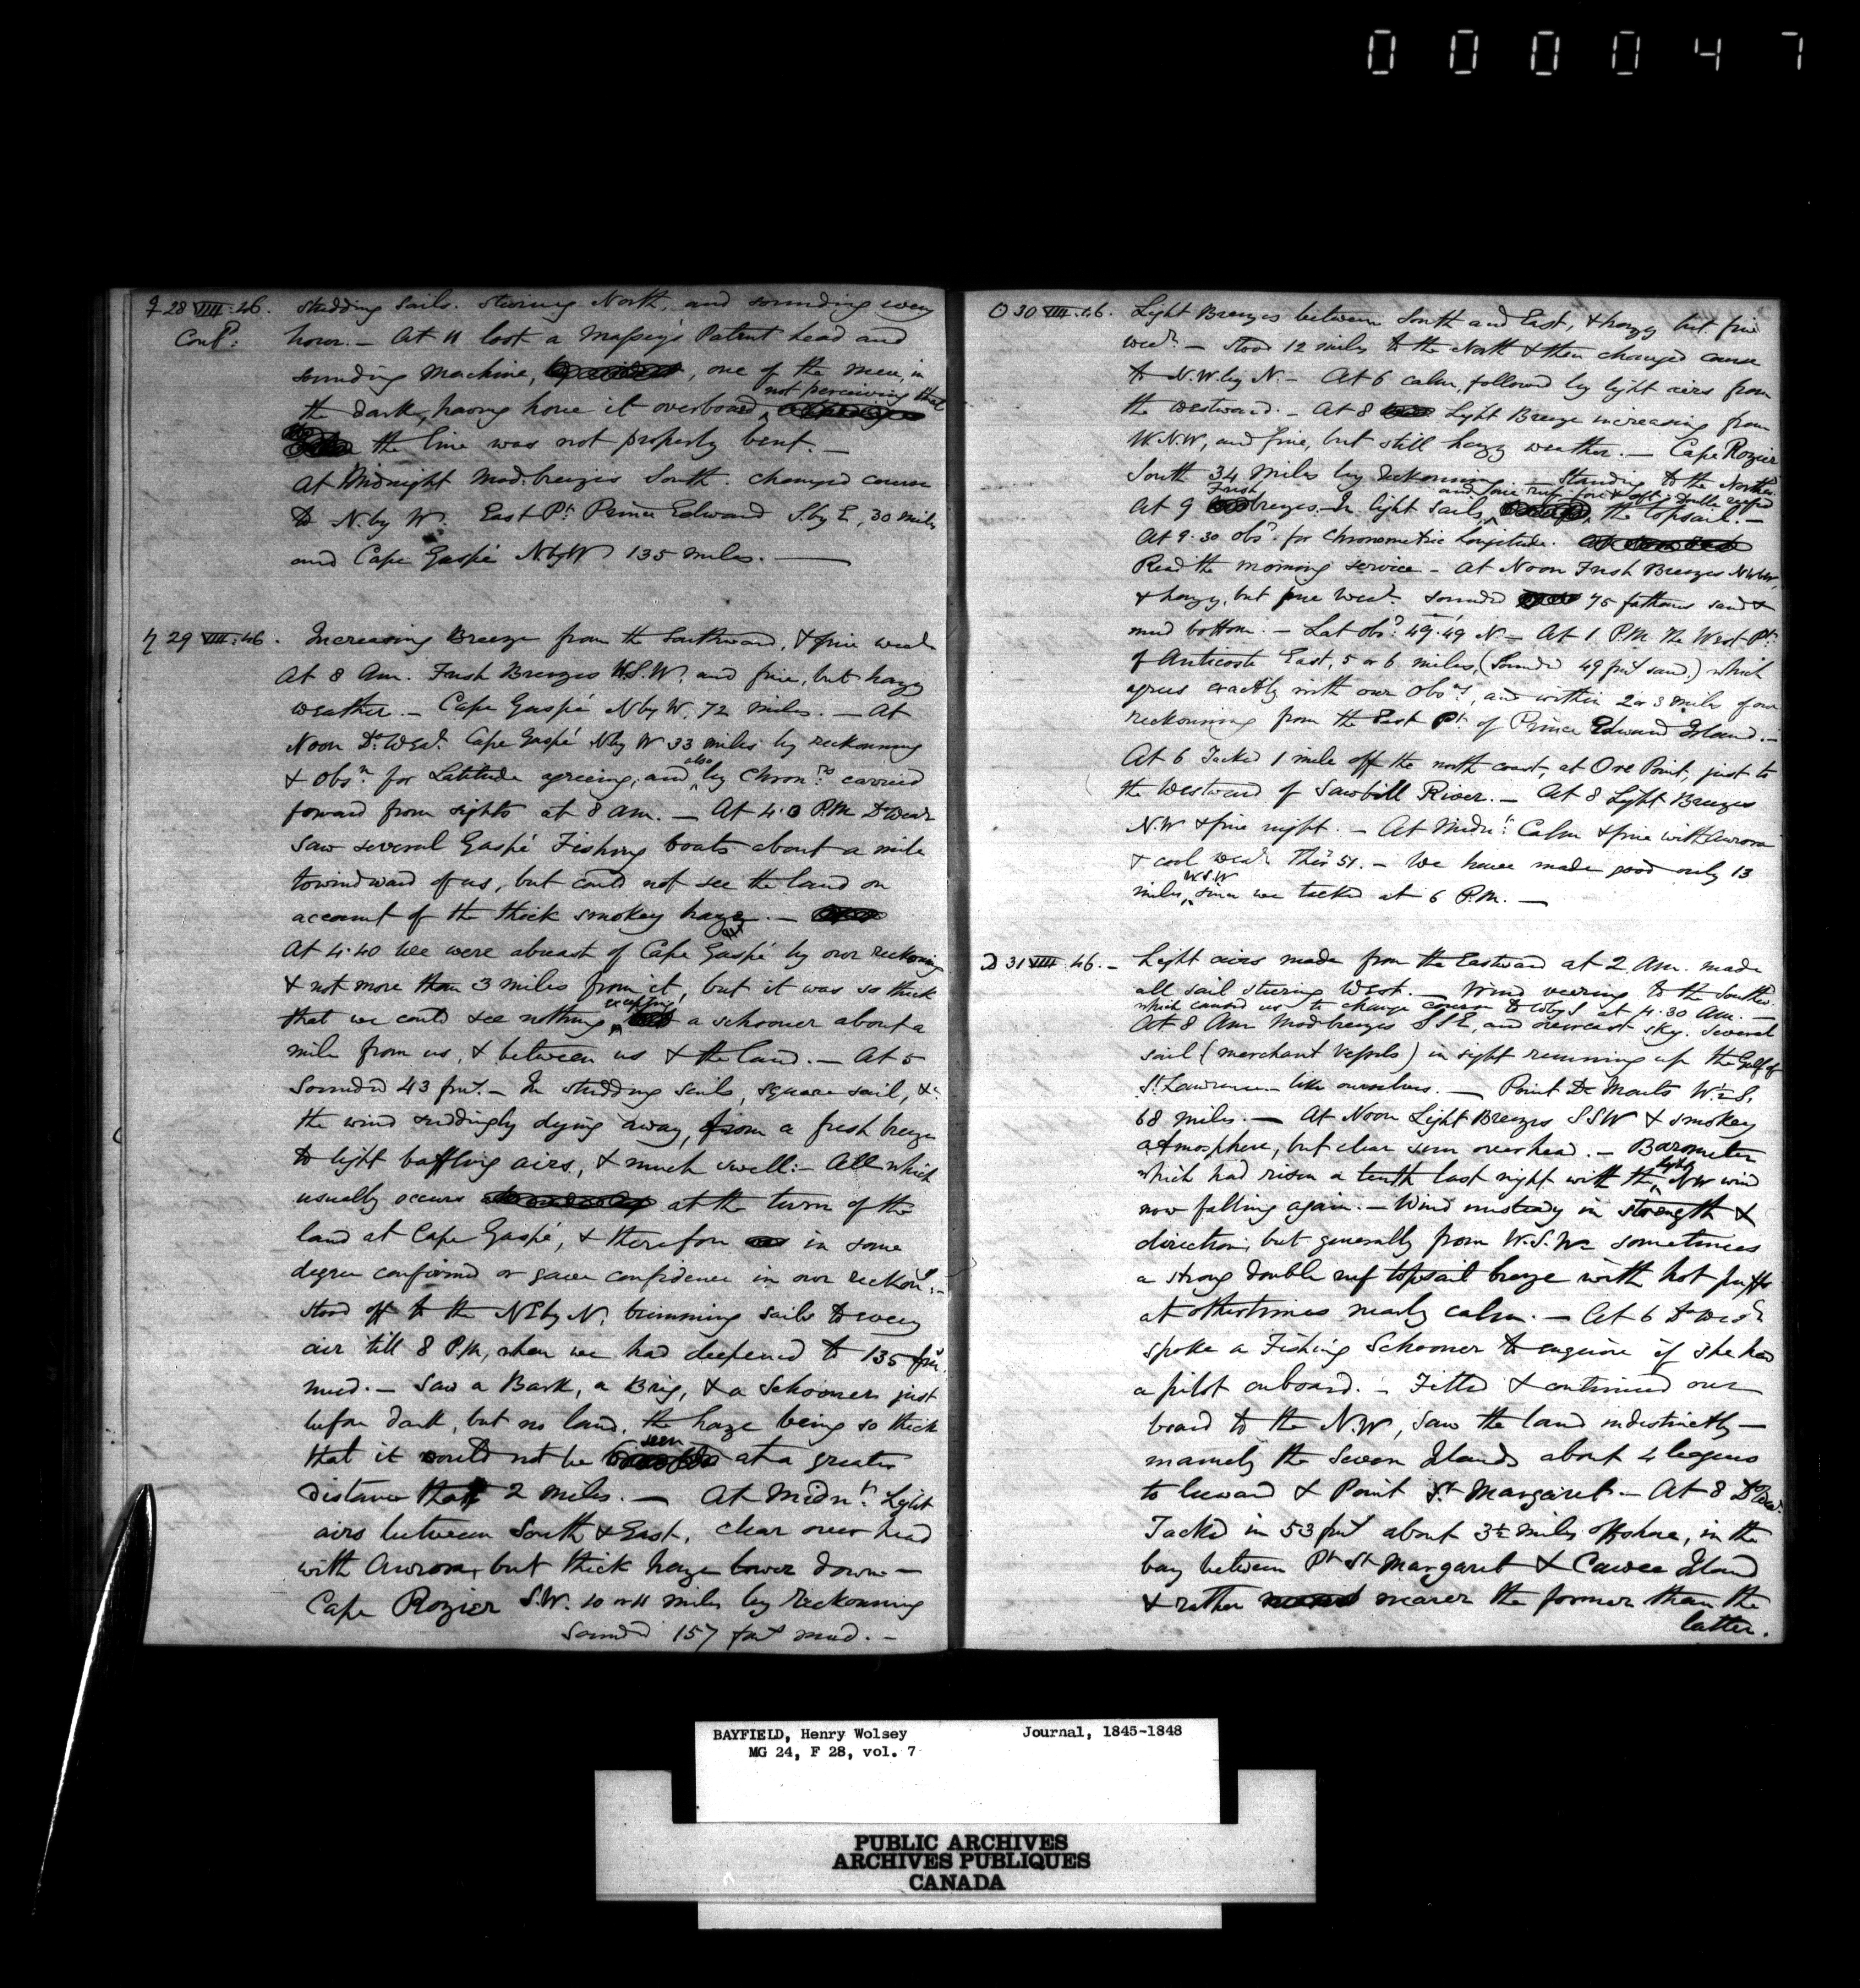 000047
♀ 28 VIII. 46. Studding Sails. Steering North, and sounding every
Contd. hour. — At 11 lost a Massey's Patent head and
sounding Machine, , one of the men, in
the dark, having hove it overboard not perceiving that
the line was not properly bent. —
At Midnight Mod. breezes South. changed course
to N. by W. East Pt. Prince Edward S. by E, 30 miles
and Cape Gaspé N. by W 135 miles. —
♄ 29 VIII. 46. Increasing Breeze from the Southward, & fine weath
At 8 Am. Fresh Breezes W.S.W. and fine, but hazy
weather. — Cape Gaspé N by W, 72 miles. — At
Noon Do. Wea. Cape Gaspé N by W 33 miles by reckonning
& Obsn. for Latitude agreeing, and also by Chronrs carried
forward from sights at 8 am. — At 4.0 P.M. Do Wear
Saw several Gaspé Fishing boats about a mile
to windward of us, but could not see the land on
account of the thick smokey haze. —
At 4.40 We were abreast of Cape Gaspé by our reckoning
& not more than 3 miles from it, but it was so thick
that we could see nothing excepting a schooner about a
mile from us, & between us & the land. — At 5
Sounded 43 fms. — In studding sails, square sail, &c
the wind suddingly dying away, from a fresh breeze
to light baffling airs, & much swell: — All which
usually occurs at the turn of the
land at Cape Gaspé, & therefore in some
degree confirmed or gave confidence in our reckong. —
Stood off to the NE by N. trimming sails to every
air till 8 P.M, when we had deepened to 135 fms.
mud. — Saw a Bark, a Brig, & a Schooner just
before dark, but no land, the haze being so thick
that it could not be seen at a greater
distance than 2 miles. — At Midnt. Light
airs between South & East, clear over head
with Aurora, but thick haze lower down —
Cape Rozier S.W. 10 or 11 miles by reckonning
Sounded 157 fms mud. —
☉ 30 VIII. 46. Light Breezes between South and East, & hazy but fine
weath. — Stood 12 miles to the North & then changed course
to N.W. by N. — At 6 calm, followed by light airs from
the westward. — At 8 Light Breeze increasing from
W.N.W, and fine, but still hazy weather. — Cape Rozier
South 34 Miles by reckonning. — Standing to the Northd.
At 9 Fresh breezes. In light sails, and one reef fore & aft, double reefed the topsail. —
At 9.30 Obsd. for Chronometric Longitude.
Read the morning service — At Noon Fresh Breezes
& hazy, but fine Weath. Sounded 75 fathoms sand &
mud bottom. — Lat Obsd. 49.49 N. — At 1 P.M. The West Pt.
of Anticosti East, 5 or 6 miles, (Sounded 49 fms sand.) which
agrees exactly with our Obsns, and within 2 or 3 miles of our
reckonning from the East Pt. of Prince Edward Island. —
At 6 Tacked 1 mile off the north coast, at Ore Point, just to
the Westward of Sawbill River. — At 8 Light Breezes
N.W & fine night. — At Midnt. Calm & fine with Aurora
& cool weath Thr. 51. — We have made good only 13
miles, W.S.W since we tacked at 6 P.M. —
☽ 31 VIII. 46. — Light airs made from the Eastward at 2 Am. made
all sail steering West. — Wind veering to the Southd.
which caused us to change course to W by S at 4.30 Am. —
At 8 Am Mod breezes SSE, and overcast sky. Several
sail (merchant Vessels) in sight running up the Gulf of
St. Lawrence like ourselves. — Point De Monts W ½ S.
68 miles. — At Noon Light Breezes SSW & smokey
atmosphere, but clear sun over head. — Barometer
which had risen a tenth last night with the light NW wind
now falling again. — Wind unsteady in strength &
direction, but generally from W.S.W — sometimes
a strong double reef topsail breeze with hot puffs
at other times nearly calm. — At 6 Do Weath
spoke a Fishing Schooner to enquire if she had
a pilot onboard. — Filled & continued our
board to the N.W, saw the land indistinctly —
namely the Seven Islands about 4 leagues
to leeward & Point St. Margaret. — At 8 Do Wea.
Tacked in 53 fms about 3½ miles offshore, in the
bay between Pt St Margaret & Cawee Island
& rather nearer the former than the
latter.
BAYFIELD, Henry Wolsey Journal, 1845-1848
MG 24, F 28, vol. 7
PUBLIC ARCHIVES
ARCHIVES PUBLIQUES
CANADA